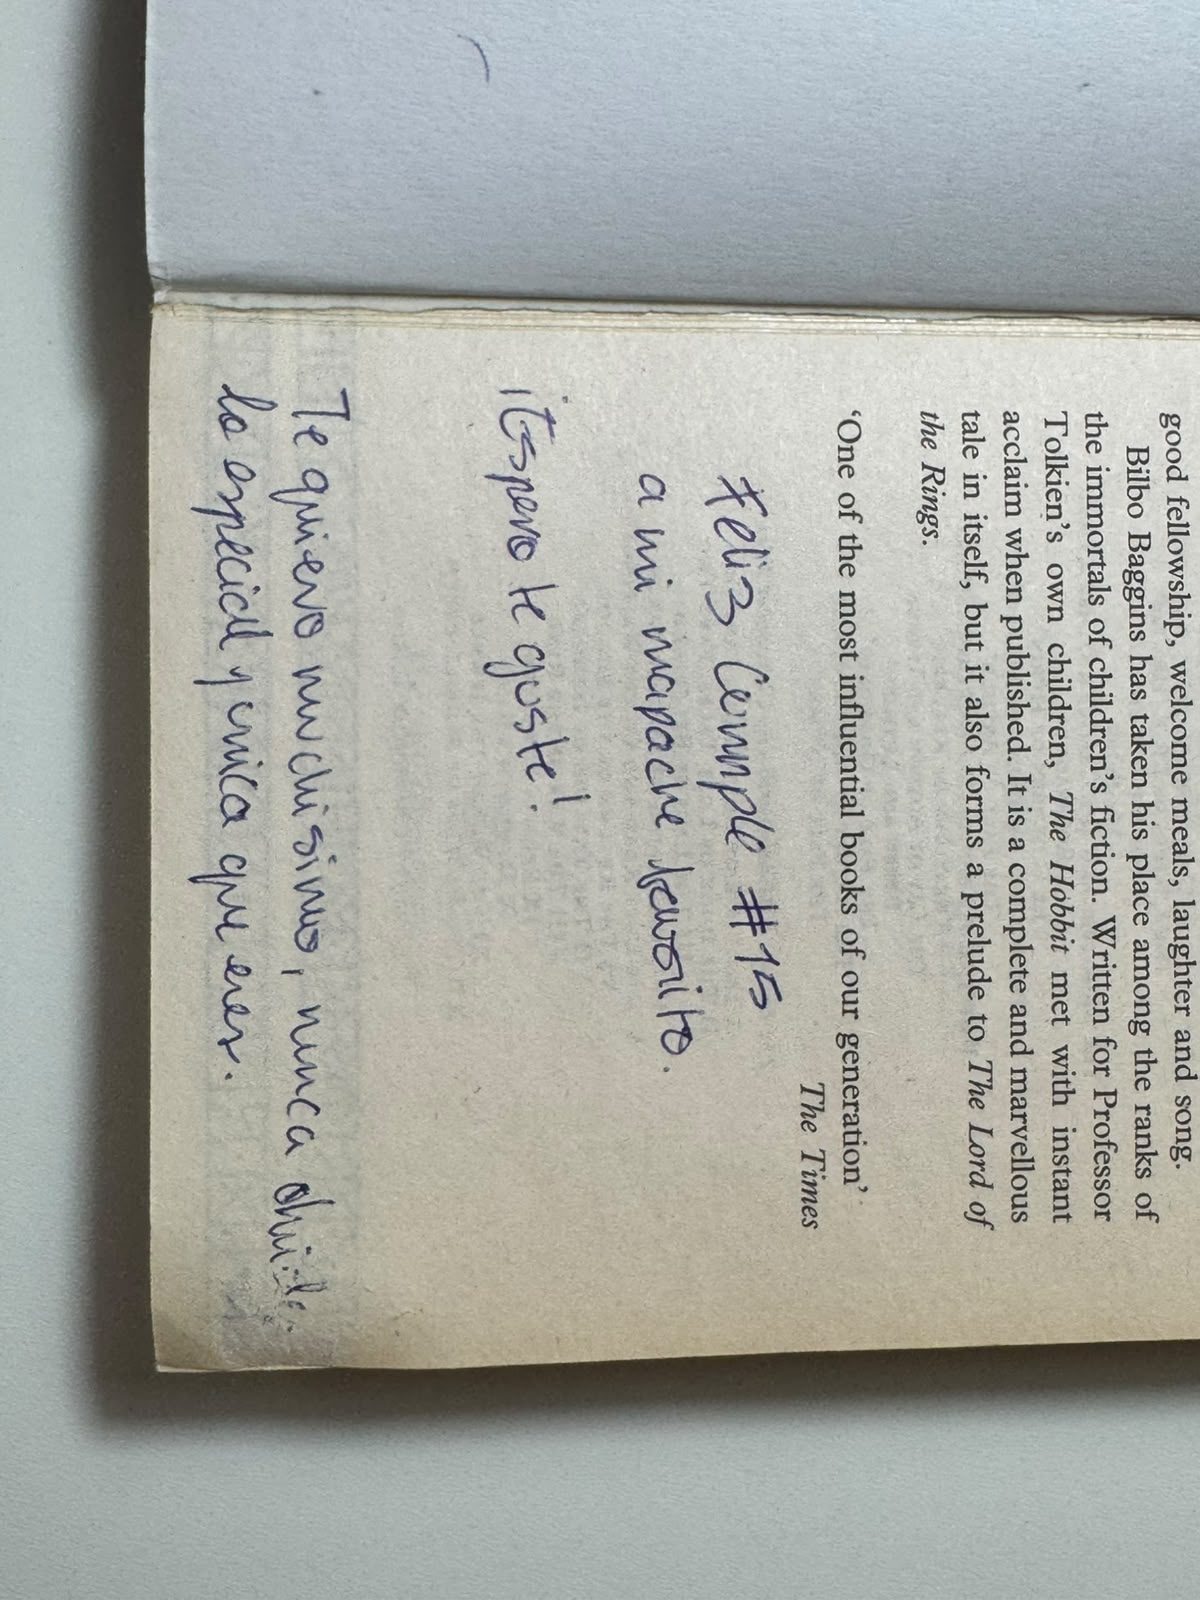 good fellowship, welcome meals, laughter and song.
Bilbo Baggins has taken his place among the ranks of
the immortals of children's fiction. Written for Professor
Tolkien's own children, The Hobbit met with instant
acclaim when published. It is a complete and marvellous
tale in itself, but it also forms a prelude to The Lord of
the Rings.
‘One of the most influential books of our generation’
The Times
Feliz Cumple #15
a mi mapache favorito.
¡Espero te guste!
Te quiero muchisimo, nunca olvides
lo especial y unica que eres.